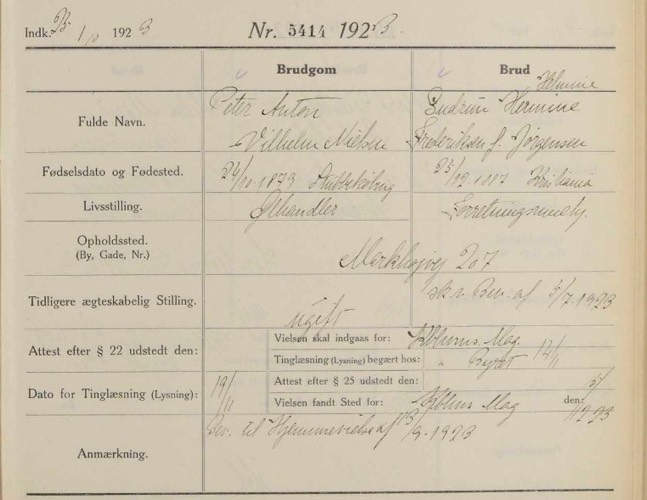 Indk. 192 3
Nr. 5414 1923.
Brudgom Brud
Helmine
Peter Anton Gudrun Hermine
Fulde Navn.
Vilhelm Nielsen Frederiksen f. Jørgensen
Fødselsdato og Fødested. 24/10 1873 Stubbekøbing Kristiania
Livsstilling. Ølhandler
Opholdssted.
(By, Gade, Nr.)
Mørkhøjvej 207
sk. v. Bev. af 5/7 1923
Tidligere ægteskabelig Stilling. ugift
Vielsen skal indgaas for: Kbhvns Mag.
Attest efter § 22 udstedt den: 12/11
Tinglæsning (Lysning) begært hos: " Byret
Attest efter § 25 udstedt den:
Dato for Tinglæsning (Lysning): 19/11
Vielsen fandt Sted for: Kbhvns Mag den: 5/12-23
Bev. til Hjemmevielse af /9-1923
Anmærkning.